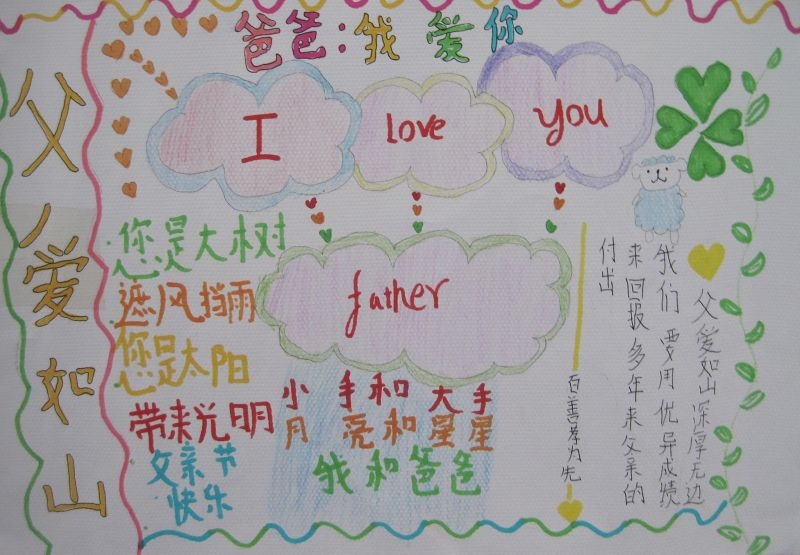 爸爸:我爱你
父爱如山
I
love
you
father
您是大树
遮风挡雨
您是太阳
带来光明
父亲节
快乐
小手和大手
月亮和星星
我和爸爸
百善孝为先
父爱如山深厚无边
我们要用优异成绩
来回报多年来父亲的
付出